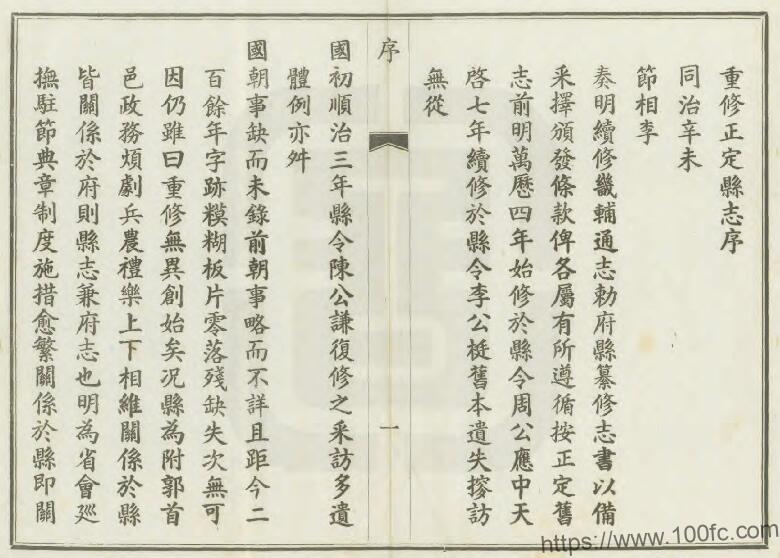 重修正定縣志序
同治辛未
節相李
奏明續修畿輔通志勅府縣纂修志書以備
采擇頒發條款俾各屬有所遵循按正定舊
志前明萬歷四年始修於縣令周公應中天
啓七年續修於縣令李公梃舊本遺失搜訪
無從
序
一
國初順治三年縣令陳公謙復修之采訪多遺
體例亦舛
國朝事缺而未錄前朝事略而不詳且距今二
百餘年字跡糢糊板片零落殘缺失次無可
因仍雖曰重修無異創始矣况縣為附郭首
邑政務煩劇兵農禮樂上下相維關係於縣
皆關係於府則縣志兼府志也明為省會廵
撫駐節典章制度施措愈繁關係於縣即關
https://www.100fc.com